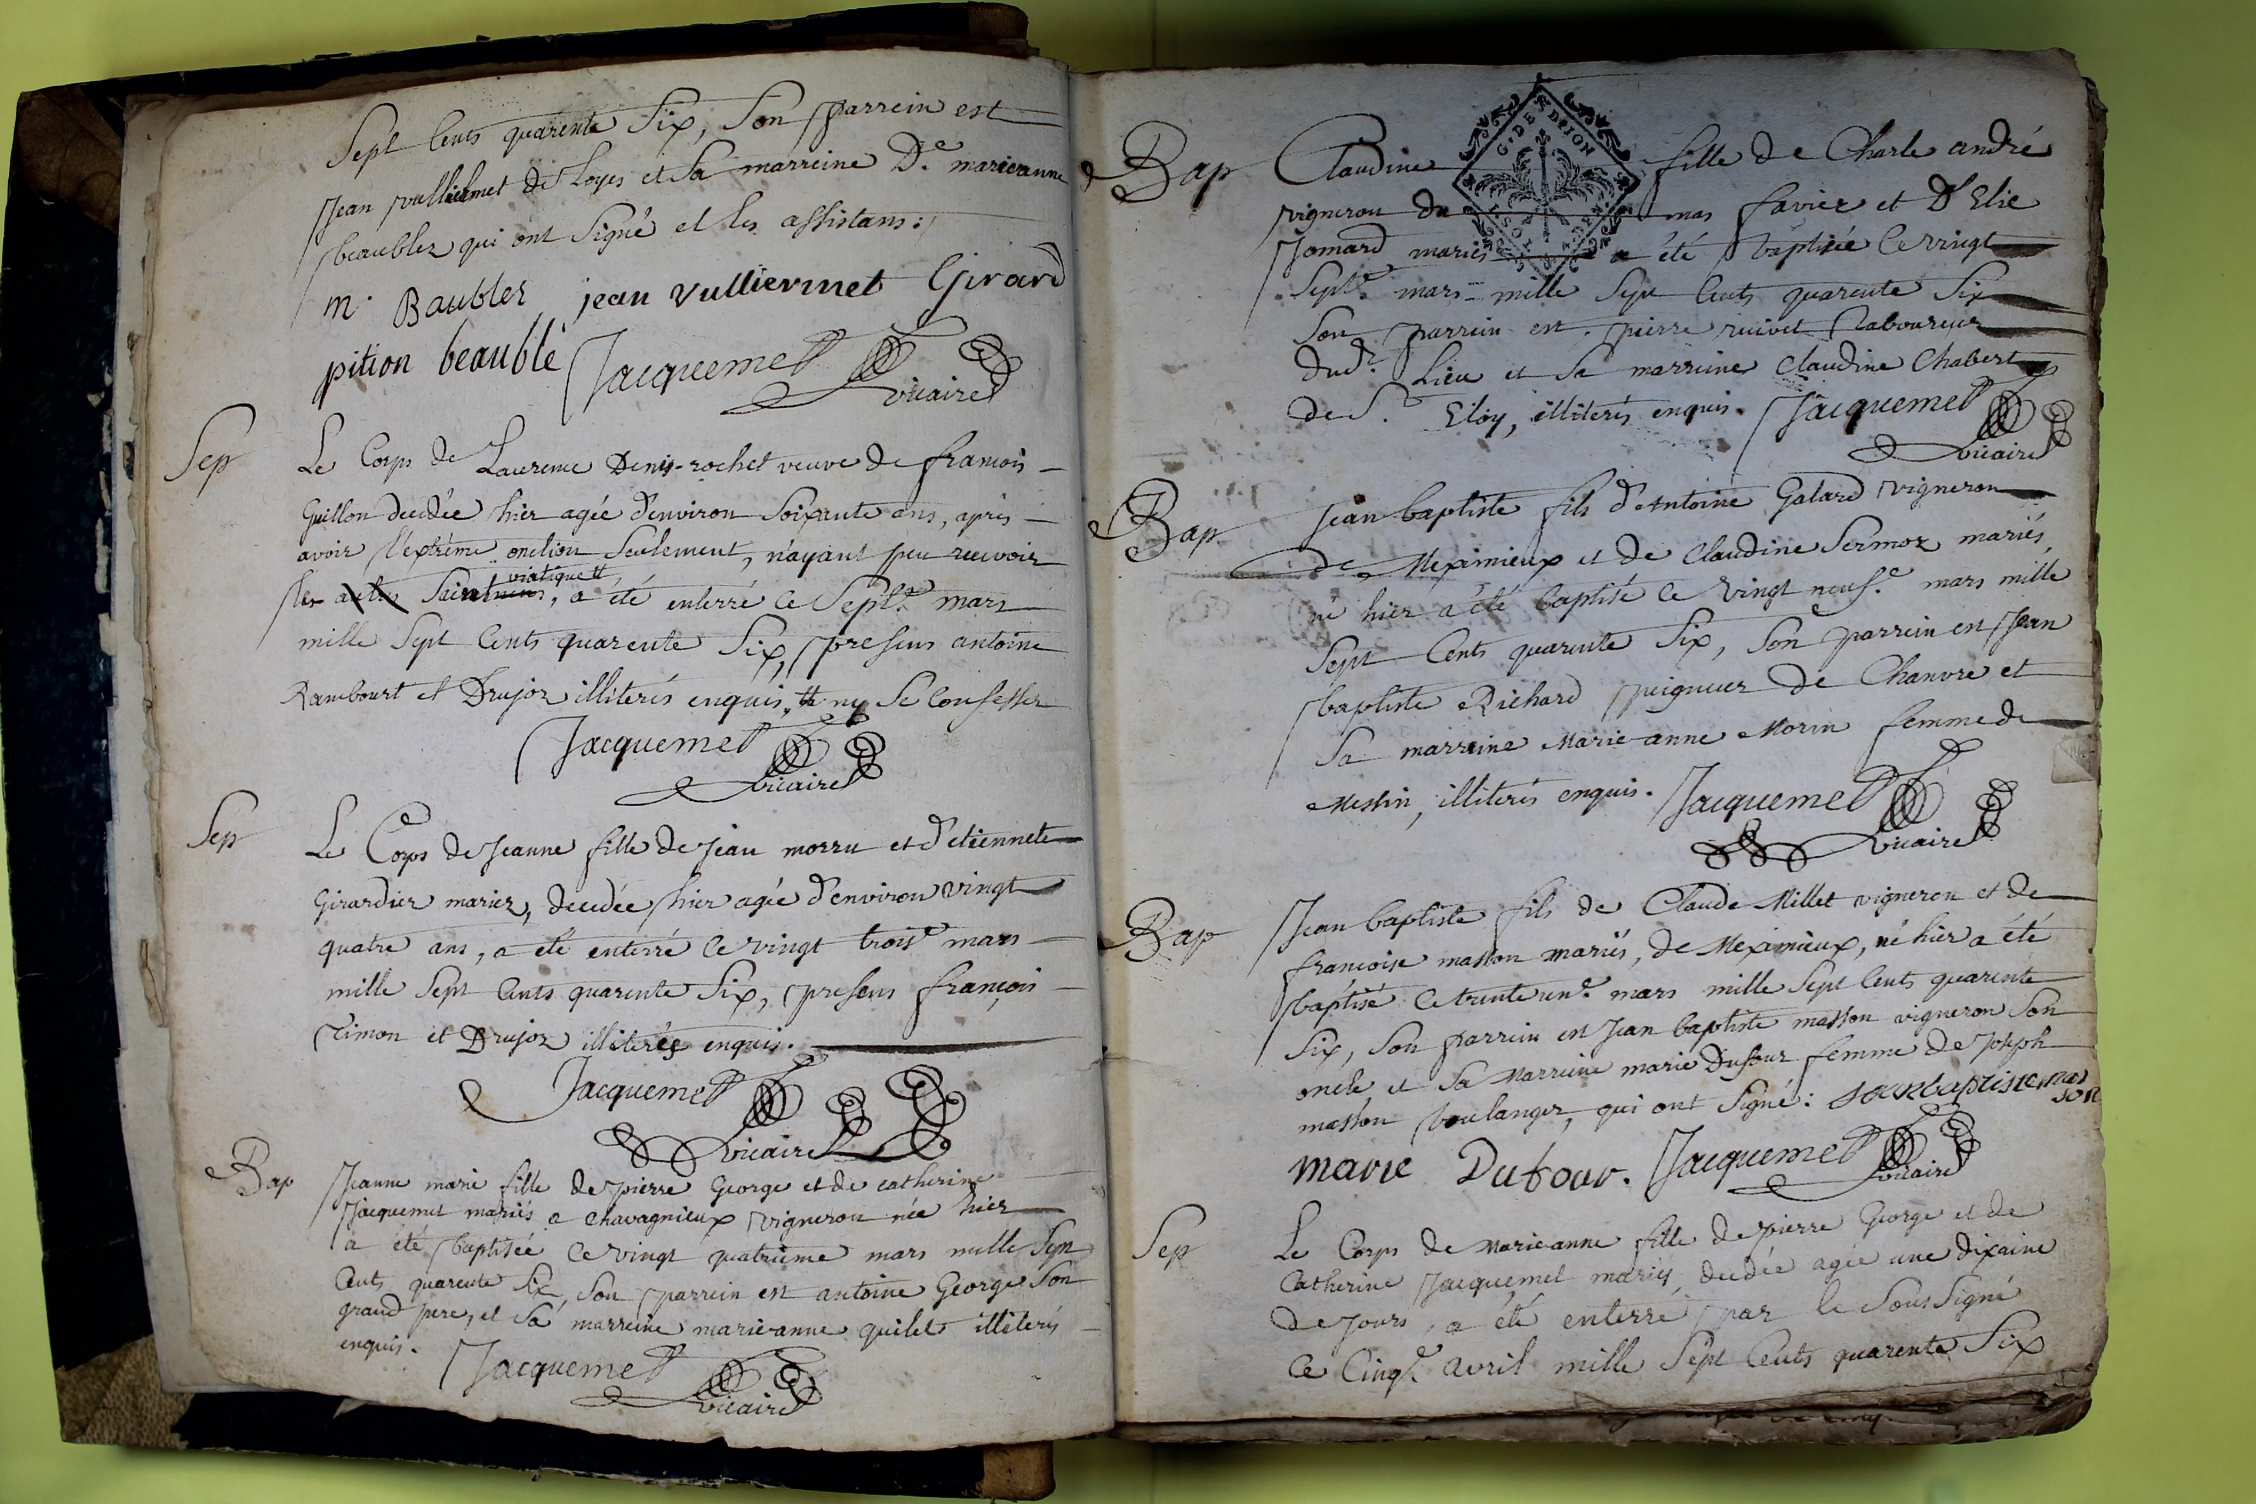 Sept Cents quarente Six, Son parrein est
Jean vulliermet de Loyes et Sa marreine De. marieanne
beaublez qui ont Signé et les assistans:
m. Baublez jean vulliermet Girard
pition beaublé Jacquemet
vicaire
Sep
Le Corps de Laurence Denis-rochet veuve de francois
Guillon decedée hier agée d'environ Soixante ans, après
avoir l'extrème onction Seulement, n'ayant peu recevoir
viatique
les autres Sacremens, a été enterré ce Septe. mars
mille Sept Cents quarente Six, presens antoine
Rambourt et Drujoz illiterés enquis, # ny Se Confesser
Jacquemet
vicaire
Sep
Le Corps de Jeanne fille de Jean morru et d'etiennete
Girardier mariez, decedée hier agée d'environ vingt
quatre ans, a été enterré ce vingt troise mars
mille Sept Cents quarente Six, presens françois
Timon et Drujoz illiterés enquis.
Jacquemet
vicaire
Bap
Jeanne marie fille de pierre George et de catherine
Jacquemet mariés a chavagnieux vigneron née hier
a été baptisée ce vingt quatrieme mars mille Sept
Cents quarente Six, Son parrein est antoine George Son
grand pere, et Sa marreine marie-anne quilet illiterés
enquis. Jacquemet
vicaire
Bap
Claudine fille de Charle andré
G. DE DIJON
vigneron du mas favier et d'Elie
Jomard mariés a été baptisée ce vingt
Septe. mars mille Sept Cents quarente Six
Son parrein est pierre ruivet Laboureur
dud. Lieu et Sa marreine Claudine Chabert
de St. Eloy, illiterés enquis. Jacquemet
vicaire
Bap
Jean baptiste fils d'Antoine Galard vigneron
de Meximieux et de Claudine Sermoz mariés,
né hier a été baptisé ce vingt neufe. mars mille
Sept Cents quarente Six, Son parrein est Jean
baptiste Richard peigneur de Chanvre et
Sa marreine Marie-anne Morin femme de
Messin, illiterés enquis. Jacquemet
vicaire
Bap
Jean baptiste fils de Claude Millet vigneron et de
francoise masson mariés, de Meximieux, né hier a été
baptisé ce trente une. mars mille Sept Cents quarente
Six, Son parrein est Jean baptiste masson vigneron Son
oncle, et Sa Marreine marie Dufour femme de Joseph
masson boulanger, qui ont Signé: Jeanbaptiste mas
son
marie Dufour. Jacquemet
vicaire
Sep
Le Corps de Marie-anne fille de pierre George et de
Catherine Jacquemet mariés, decedée agée une dixaine
de Jours, a été enterré par le Soussigné
Ce Cinqe. avril mille Sept Cents quarente Six